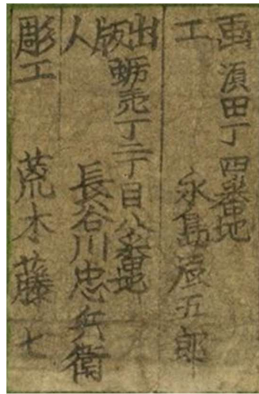 画工
濱田丁四番地
永島辰五郎
出版人
蛎売丁二丁目八番地
長谷川忠兵衛
彫工
荒木藤七